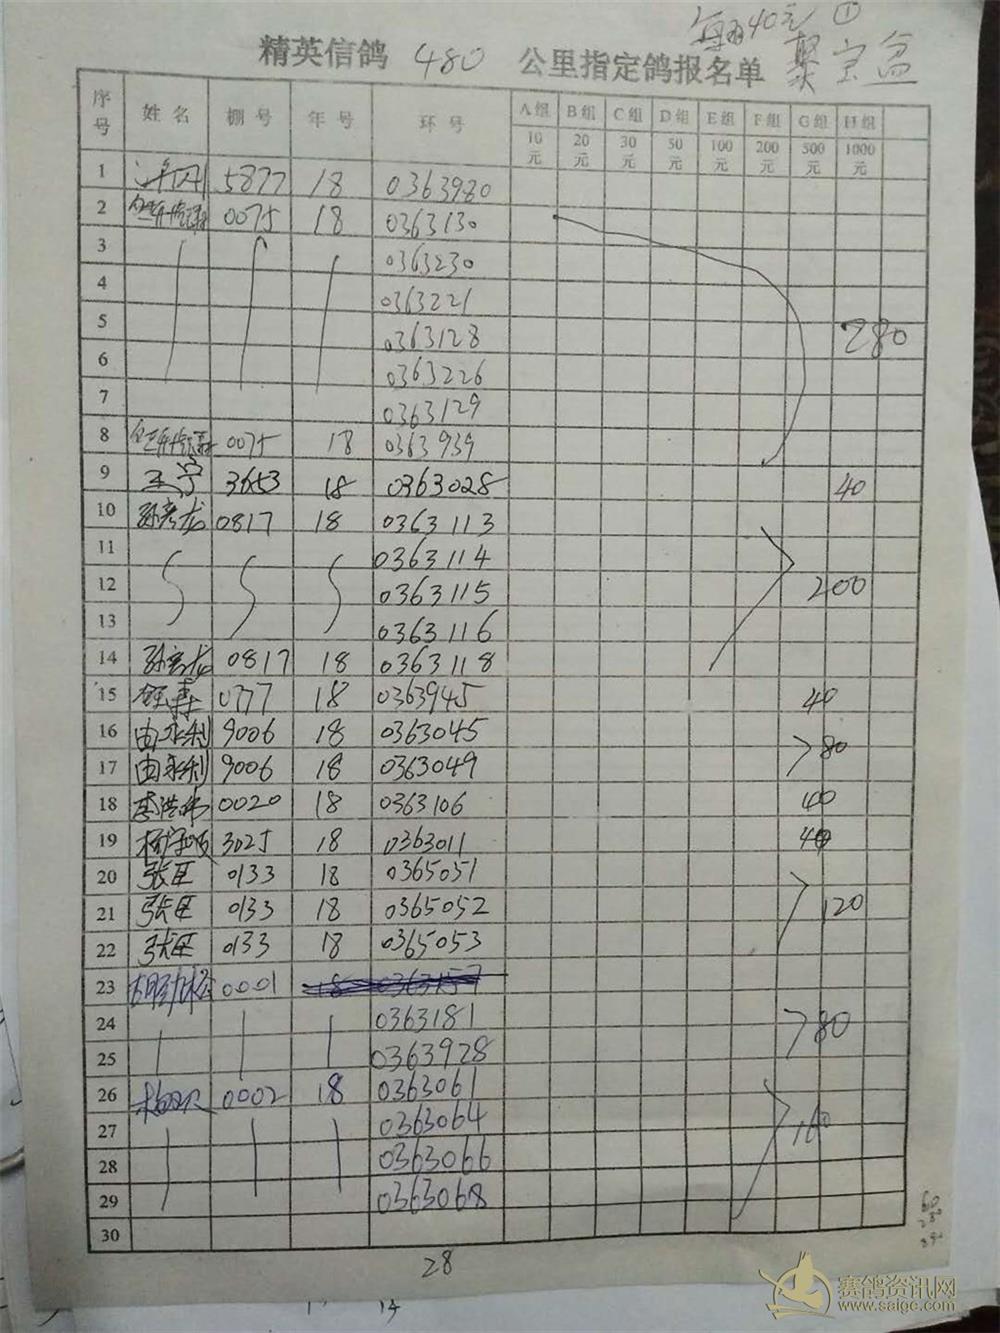 每羽40元 ①
精英信鸽 480 公里指定鸽报名单 聚宝盆
序号 姓名 棚号 年号 环号 A组 B组 C组 D组 E组 F组 G组 H组
10元 20元 30元 50元 100元 200元 500元 1000元
1 5877 18 0363980
2 0075 18 0363130
3 0363230
4 0363221
5 0363128 280
6 0363226
7 0363129
8 0075 18 0363939
9 王宁 3653 18 0363028 40
10 孙彦龙 0817 18 0363113
11 0363114
12 0363115 200
13 0363116
14 孙彦龙 0817 18 0363118
15 0777 18 0363945 40
16 由永利 9006 18 0363045
17 由永利 9006 18 0363049 80
18 李洪伟 0020 18 0363106 40
19 3025 18 0363011 40
20 张臣 0133 18 0365051
21 张臣 0133 18 0365052 120
22 张臣 0133 18 0365053
23 胡劲松 0001 18 0363157
24 0363181 80
25 0363928
26 0002 18 0363061
27 0363064 160
28 0363066
29 0363068
30
28
14
赛鸽资讯网
www.saigc.com